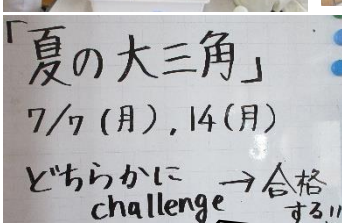 「夏の大三角」
7/7(月),14(月)
どちらかに
challenge
→合格
する!!